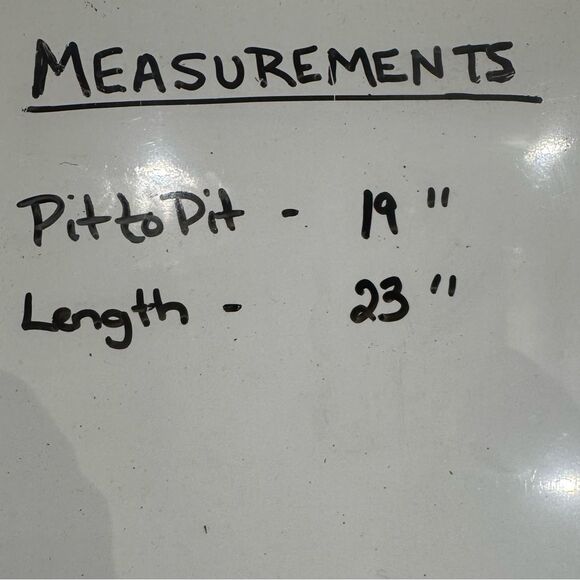 MEASUREMENTS
Pit to Pit - 19"
Length - 23"